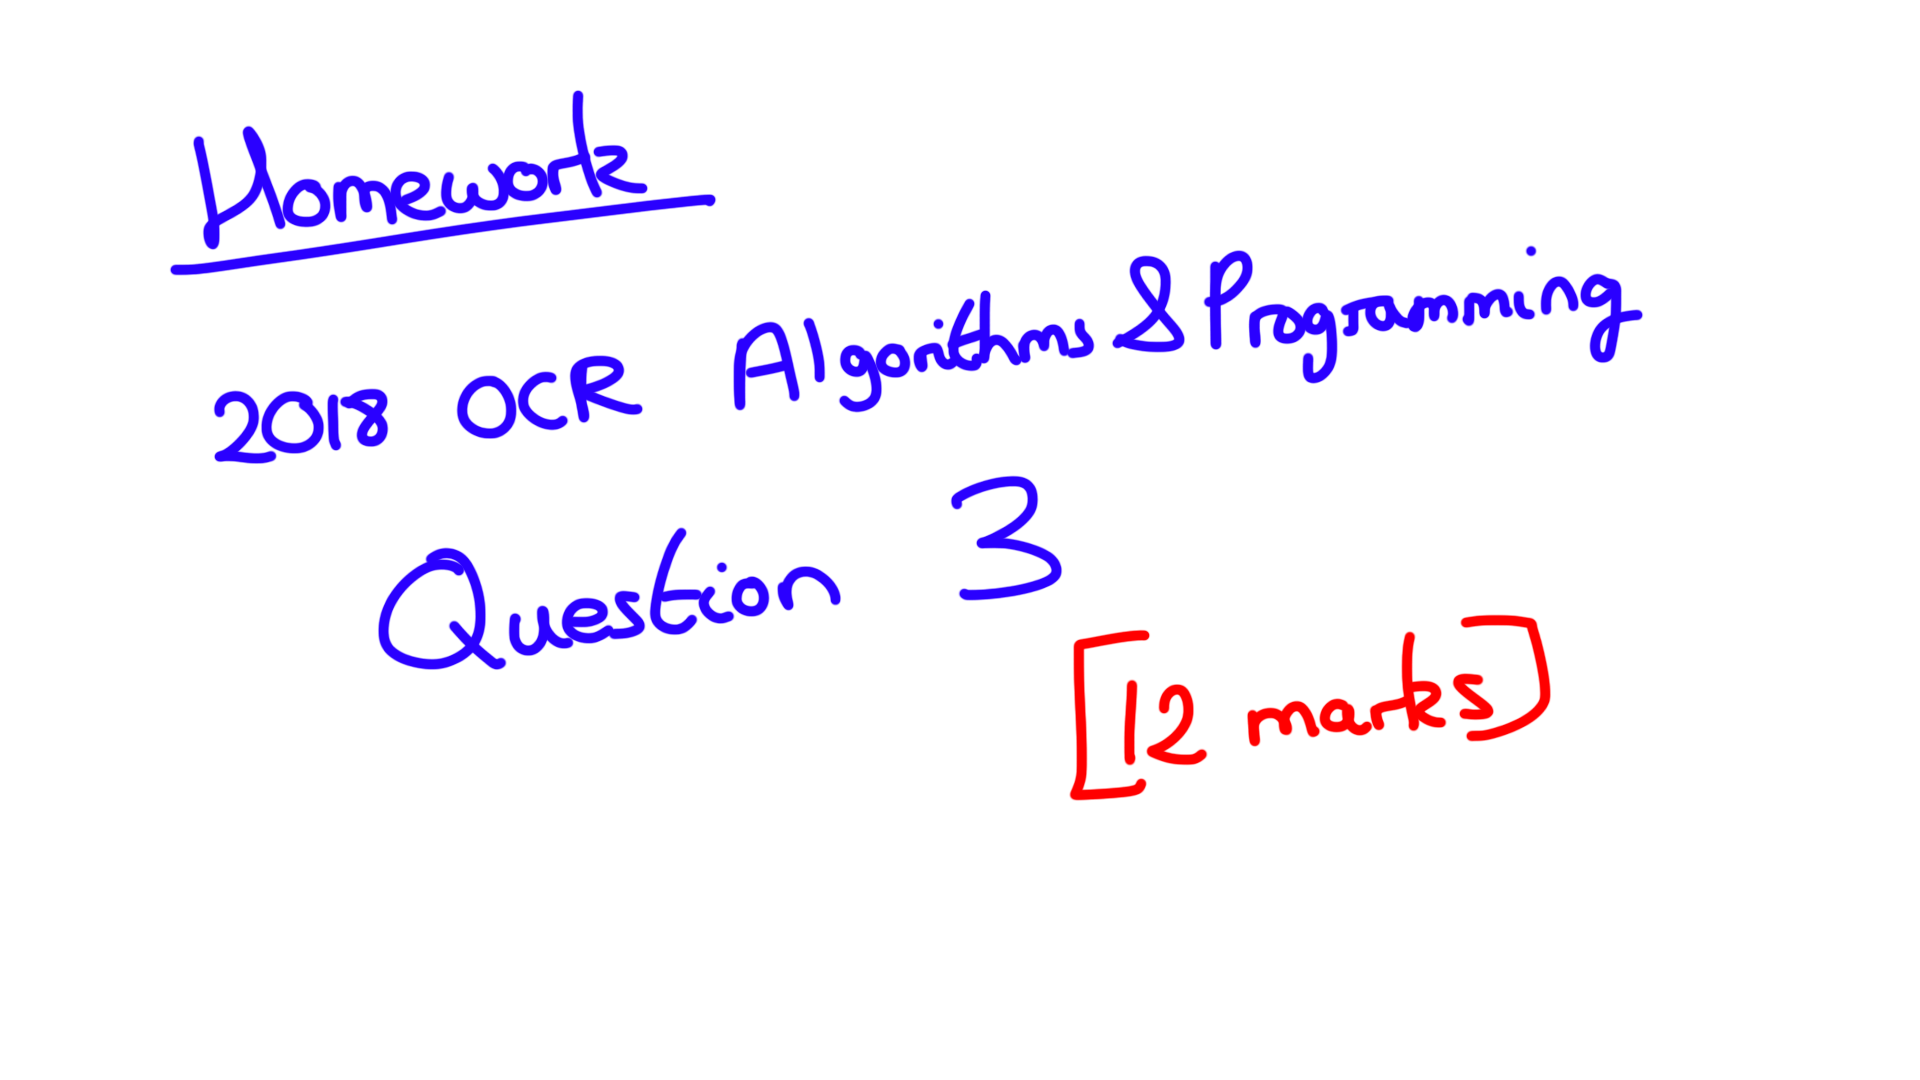 Homework
2018 OCR Algorithms & Programming
Question 3
[12 marks]